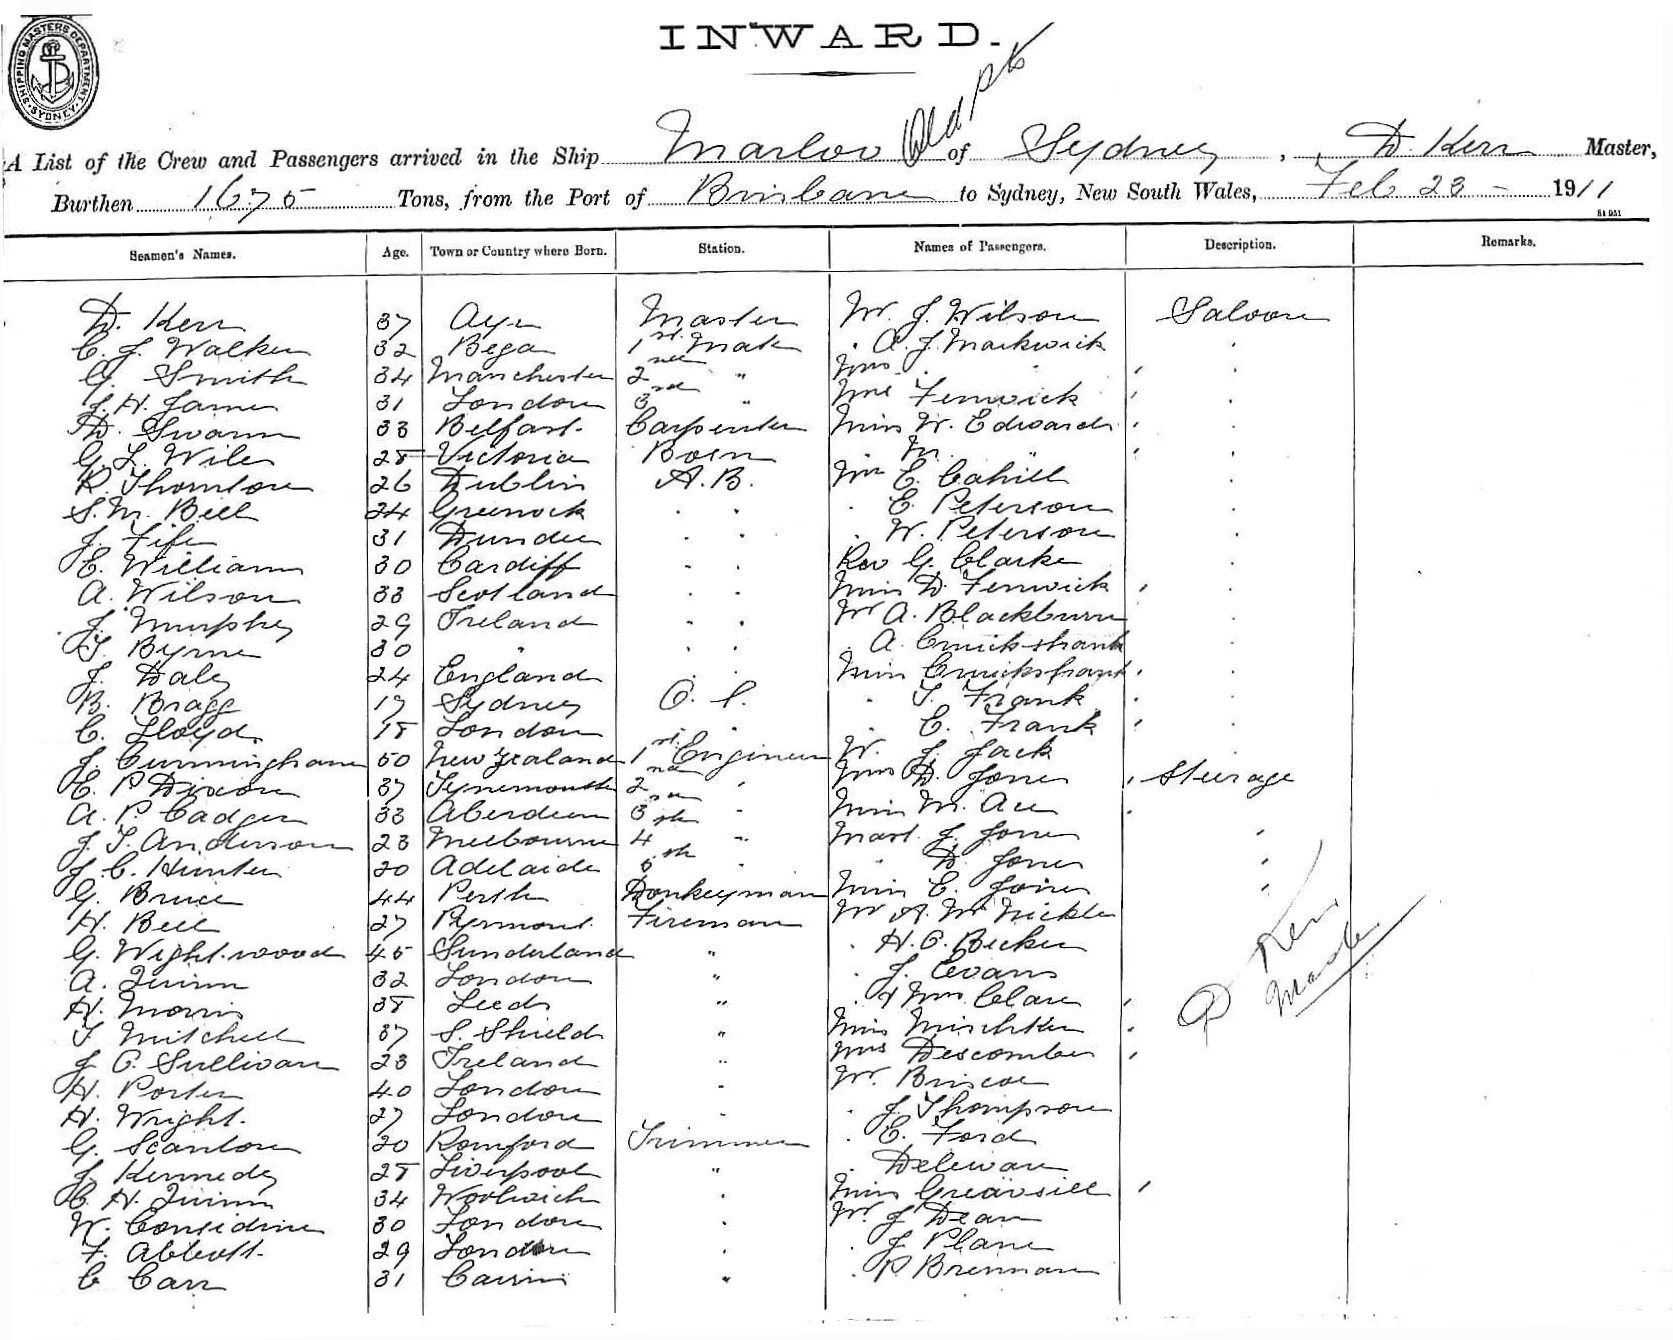 SHIPPING MASTERS DEPARTMENT SYDNEY
INWARD.
Old pt
A List of the Crew and Passengers arrived in the Ship Marloo of Sydney, D. Kerr Master,
Burthen 1675 Tons, from the Port of Brisbane to Sydney, New South Wales, Feb 23 - 1911
Seamen's Names. Age. Town or Country where Born. Station. Names of Passengers. Description. Remarks.
D. Kerr 37 Ayr Master Mr. J. Wilson Saloon
C. J. Walker 32 Bega 1st Mate . A. J. Markwick .
G. Smith 34 Manchester 2nd " Mrs . . .
J. H. James 31 London 3rd " Mrs Fenwick .
D. Swann 33 Belfast Carpenter Miss W. Edwards .
G. L. Wiles 28 Victoria Bosn . M. .
R. Thomson 26 Dublin A.B. Mr E. Cahill .
S. M. Bell 24 Greenock . . . E. Peterson .
J. Fife 31 Dundee . . . W. Peterson .
E. William 30 Cardiff . . Rev G. Clarke .
A. Wilson 33 Scotland . . Miss D. Fenwick .
J. Murphy 29 Ireland . . Mr A. Blackburn .
T. Byrne 30 " . . . A. Cruickshank .
J. Daley 24 England . . Miss Cruickshank .
B. Bragg 17 Sydney O. S. . T. Frank .
C. Lloyd 18 London . E. Frank .
J. Cunningham 50 New Zealand 1st Engineer Mr. J. Jack .
E. P Dixon 37 Tynemouth 2nd " Mrs D. Jones Steerage
A. P. Cadger 33 Aberdeen 3rd " Miss M. .
J. T. Anderson 23 Melbourne 4th " Mast. J. Jones "
J. C. Hunter 20 Adelaide 5th " " D. Jones "
G. Bruce 44 Perth Donkeyman Miss E. Jones "
H. Bell 27 Pyrmont Fireman Mr A. McNickle
G. Wightwood 45 Sunderland " . H. C. Becker
A. Quinn 32 London " . J. Evans
H. Morris 38 Leeds " . & Mrs Clare
T Mitchell 37 S. Shields " Miss Mischker
J O. Sullivan 23 Ireland " Mrs Descombes
H. Porter 40 London " Mr. Briscoe
H. Wright. 27 London " . J. Thompson
G. Scanlon 20 Romford Trimmer . E. Ford
J. Kennedy 28 Liverpool " . Delewan
C. H. Quinn 34 Woolwich " Miss Greavsill
W. Considine 30 London " Mr. J Dean
F. Abbott 29 London " . J Plane
C Carr 31 " . P. Brennan
D Kerr
Master